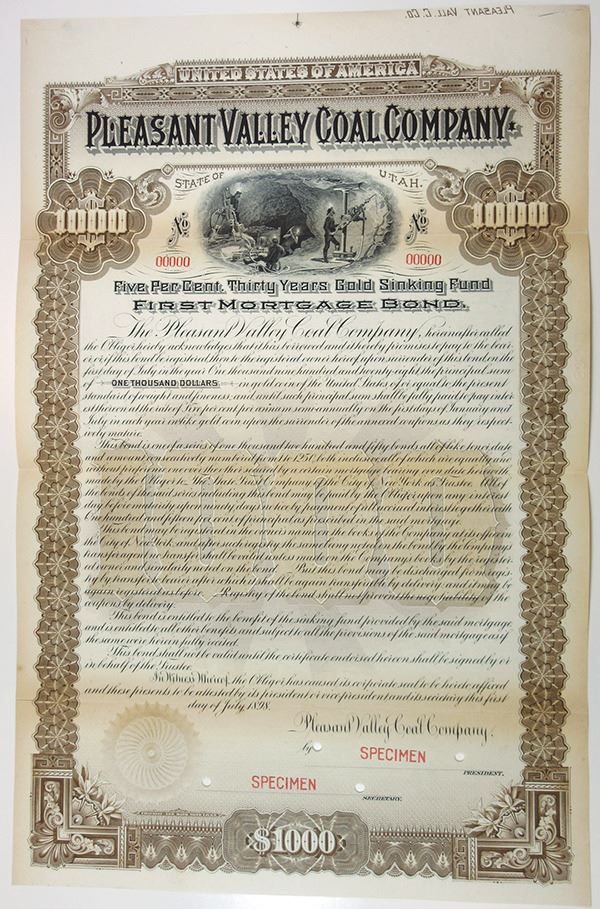 PLEASANT VALL. C. CO.
UNITED STATES OF AMERICA
PLEASANT VALLEY COAL COMPANY.
STATE OF UTAH.
$1000 $1000
No No
00000 00000
Five Per Cent. Thirty Years Gold Sinking Fund
FIRST MORTGAGE BOND.
The Pleasant Valley Coal Company, hereinafter called
the Obligor hereby acknowledges that it has borrowed and thereby promises to pay to the bear-
er, or if this bond be registered then to the registered owner hereof upon surrender of this bond on the
first day of July in the year One thousand nine hundred and twenty eight the principal sum
of ONE THOUSAND DOLLARS in gold coin of the United States of or equal to the present
standard of weight and fineness, and until such principal sum shall be fully paid to pay inter-
est thereon at the rate of Five per cent per annum, semi-annually on the first days of January and
July in each year in like gold coin upon the surrender of the annexed coupons as they respect-
ively mature.
This bond is one of a series of one thousand two hundred and fifty bonds all of like tenor, date
and amount consecutively numbered from 1 to 1250, both inclusive all of which are equally and
without preference one over the other secured by a certain mortgage bearing even date herewith
made by the Obligor to the State Trust Company of the City of New York as Trustee. All of
the bonds of the said series including this bond may be paid by the Obligor upon any interest
day before maturity upon sixty days notice by payment of all unpaid interest together with
One hundred and fifteen per cent of principal as prescribed in the said mortgage.
This bond may be registered in the owner's name in the books of the Company at its office in
the City of New York, and after such registry, the same being noted on the bond by the Company's
transfer agent, no transfer shall be valid unless made on the Company's books by the register-
ed owner and similarly noted on the bond. But this bond may be discharged from regis-
try by transfer to bearer after which it shall be again transferable by delivery and it may be
again registered as before. Registry of the bond shall not prevent the negotiability of the
coupons by delivery.
This bond is entitled to the benefit of the sinking fund provided by the said mortgage
and is entitled to all other benefits and subject to all the provisions of the said mortgage as if
the same were herein fully recited.
This bond shall not be valid until the certificate endorsed hereon shall be signed by or
in behalf of the Trustee.
In Witness Whereof, the Obligor has caused its corporate seal to be hereto affixed
and these presents to be attested by its president or vice president and its secretary this first
day of July 1898.
Pleasant Valley Coal Company,
by SPECIMEN
PRESIDENT.
SPECIMEN
SECRETARY.
$1000